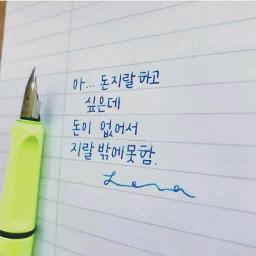 아... 돈지랄하고
싶은데
돈이 없어서
지랄밖에못함.
Lena